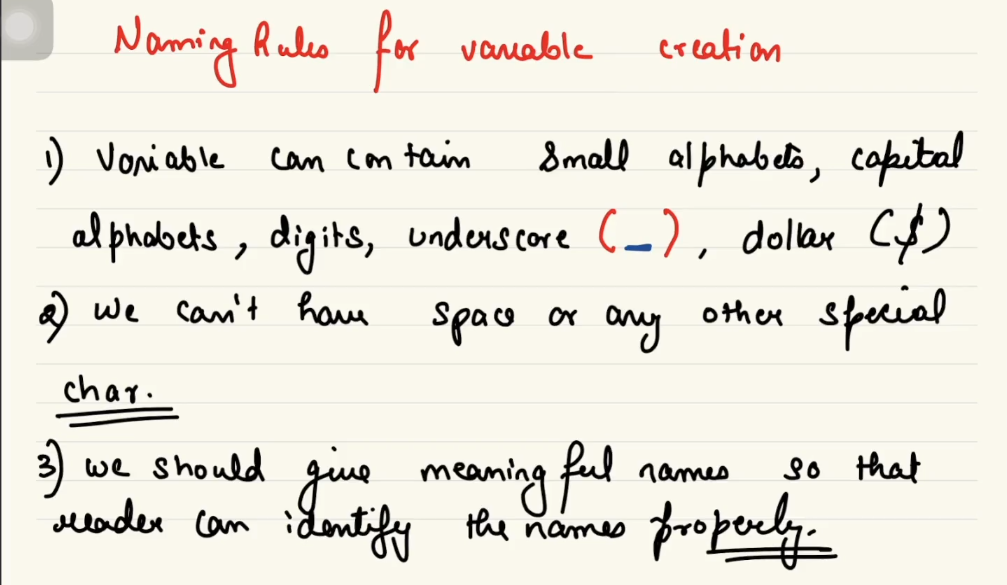 Naming Rules for variable creation
1) Variable can contain small alphabets, capital
alphabets, digits, underscore (_), dollar ($)
2) we can't have space or any other special
char.
3) we should give meaningful names so that
reader can identify the names properly.